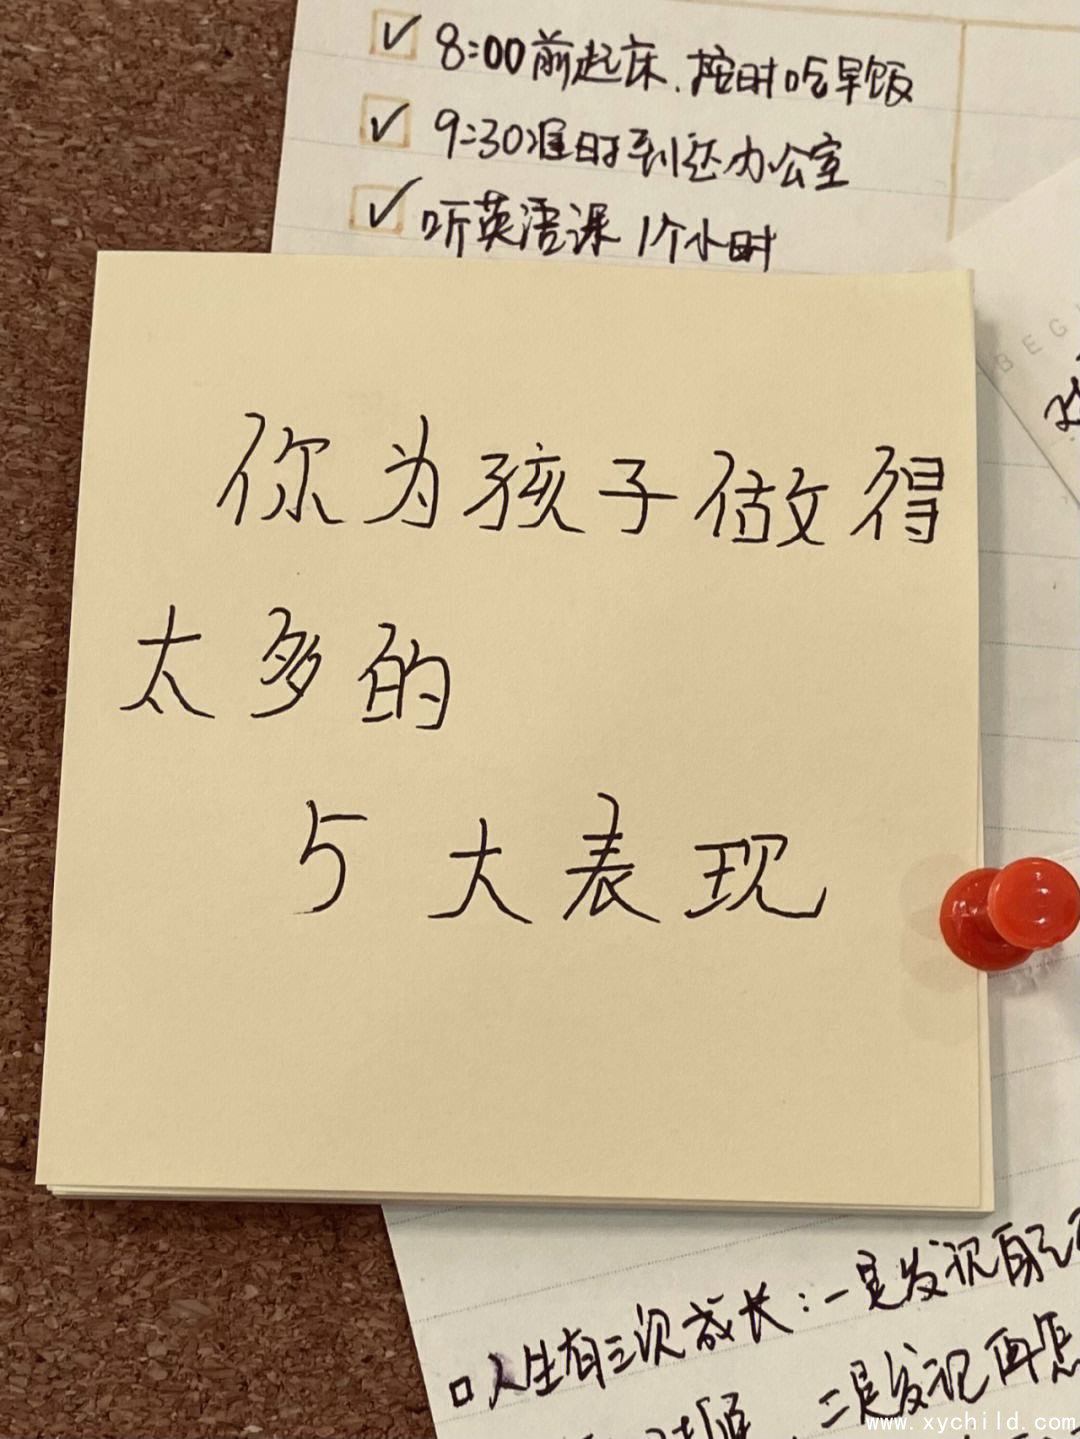 8:00前起床.按时吃早饭
9:30准时到达办公室
听英语课 1个小时
BEG
你为孩子做得
太多的
5大表现
人生有三次成长:一是发现自己
二是发现再怎
www.xychild.com